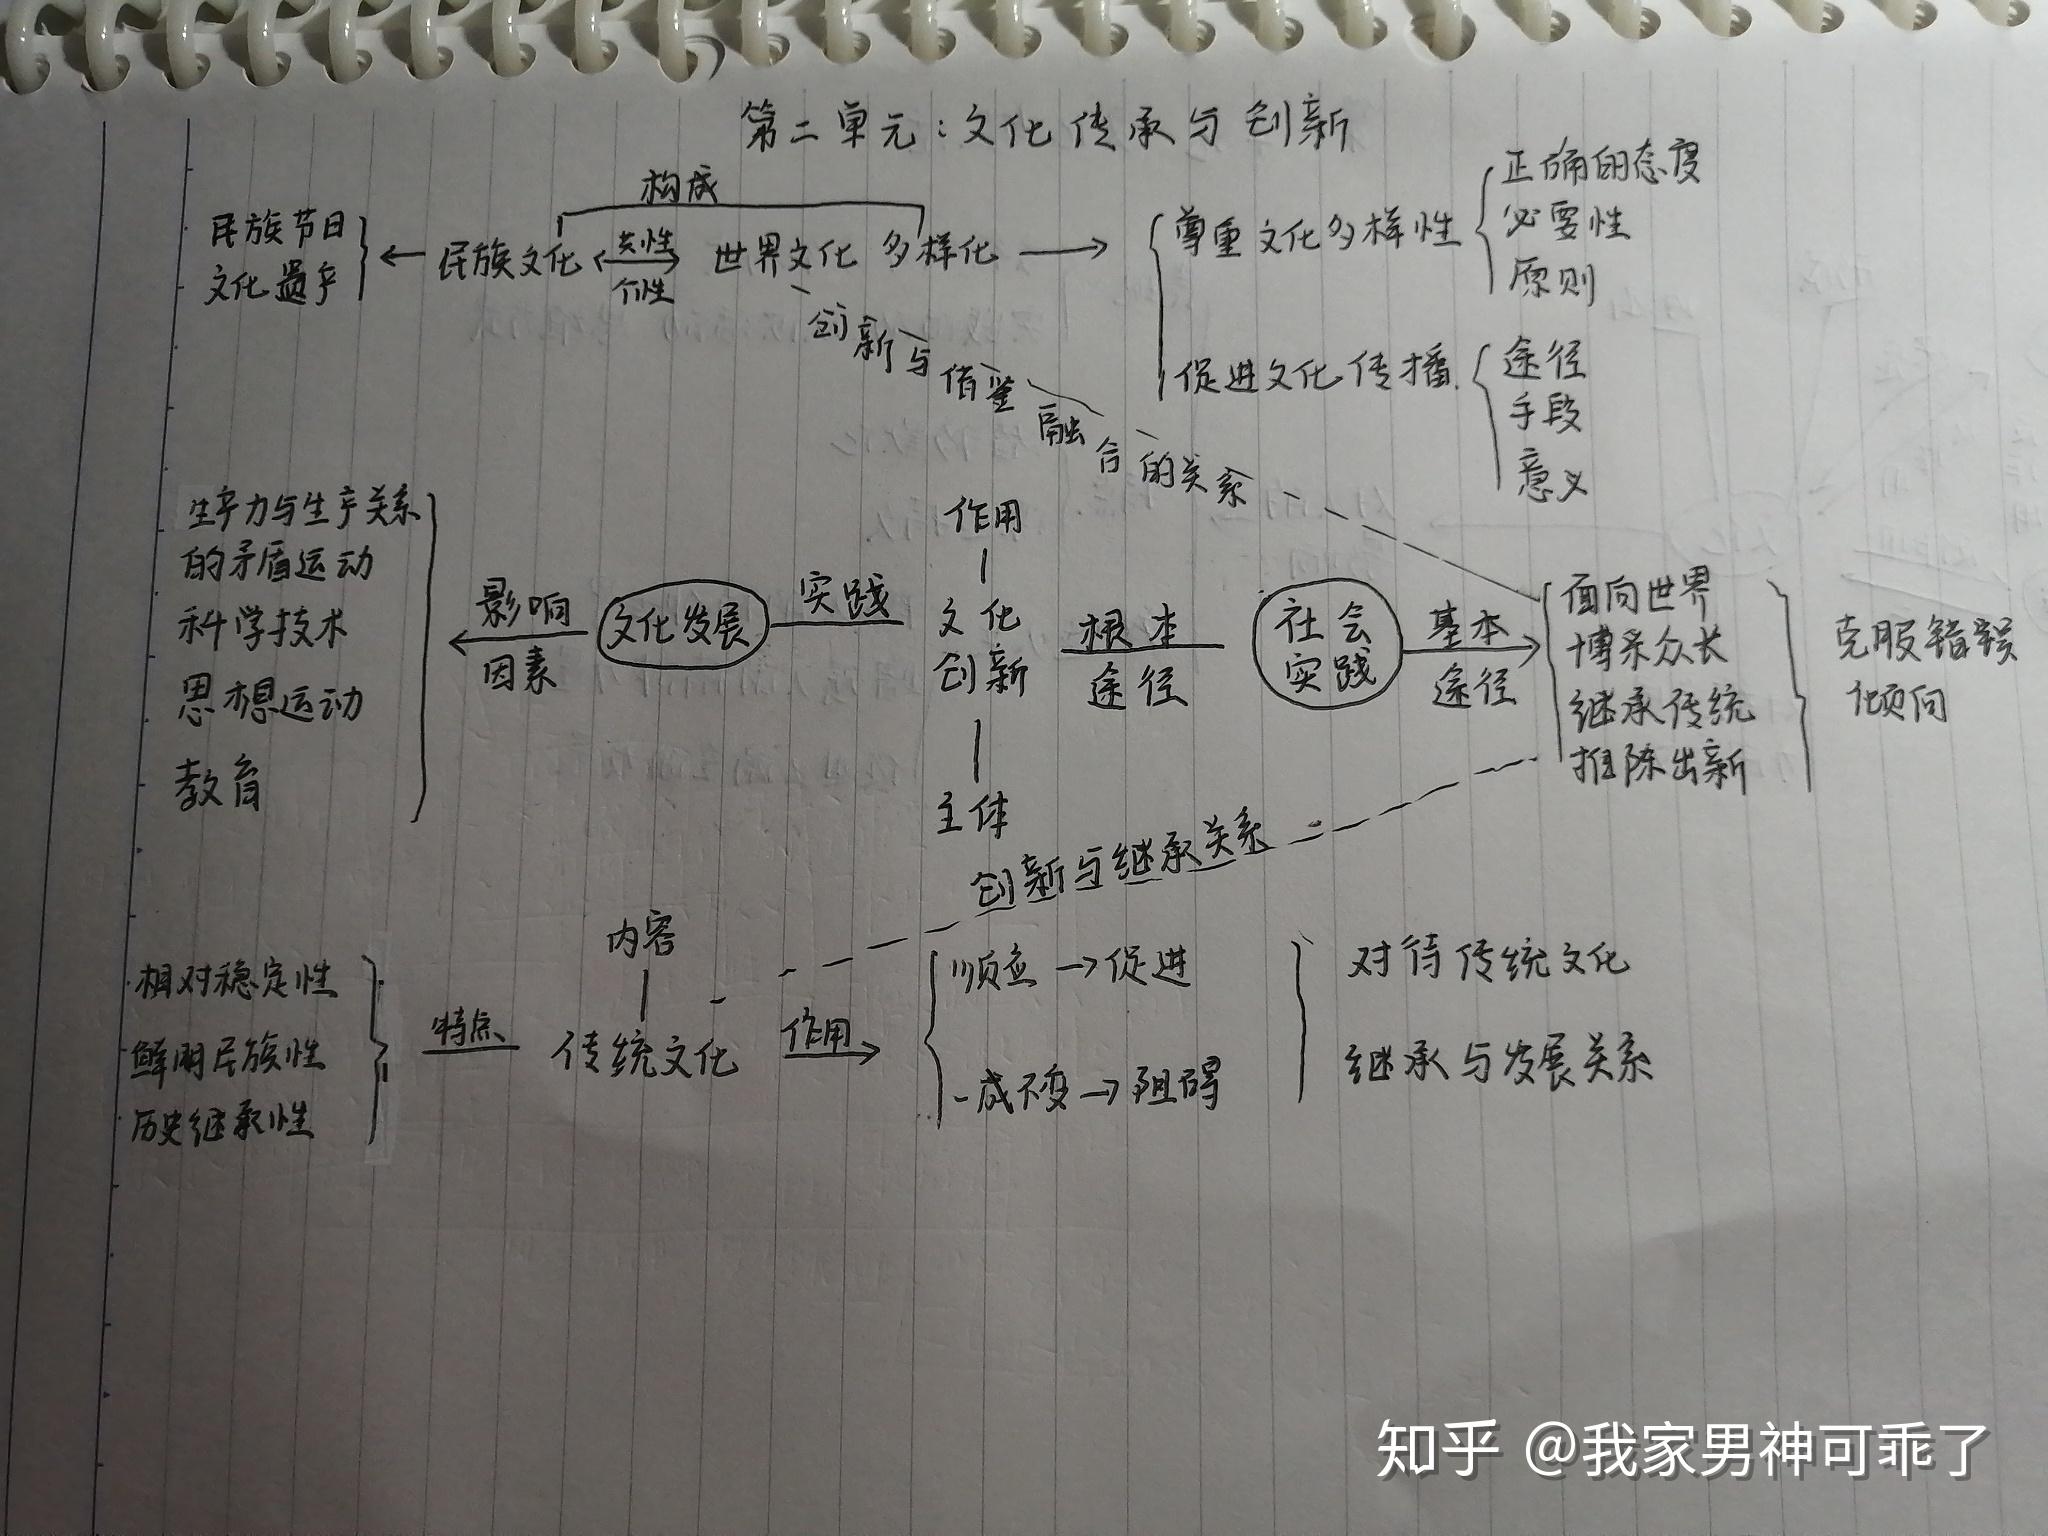 第二单元:文化传承与创新
构成
民族节日
文化遗产
民族文化
共性
个性
世界文化 多样化
尊重文化多样性
正确的态度
必要性
原则
促进文化传播
途径
手段
意义
创新与借鉴融合的关系
生产力与生产关系
的矛盾运动
科学技术
思想运动
教育
影响
因素
文化发展
实践
作用
文化
创新
主体
根本
途径
社会
实践
基本
途径
面向世界
博采众长
继承传统
推陈出新
克服错误
倾向
创新与继承关系
相对稳定性
鲜明民族性
历史继承性
特点
内容
传统文化
作用
顺应→促进
一成不变→阻碍
对待传统文化
继承与发展关系
知乎 @我家男神可乖了